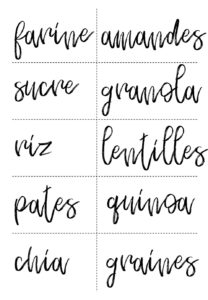 farine amandes
sucre granola
riz lentilles
pates quinoa
chia graines